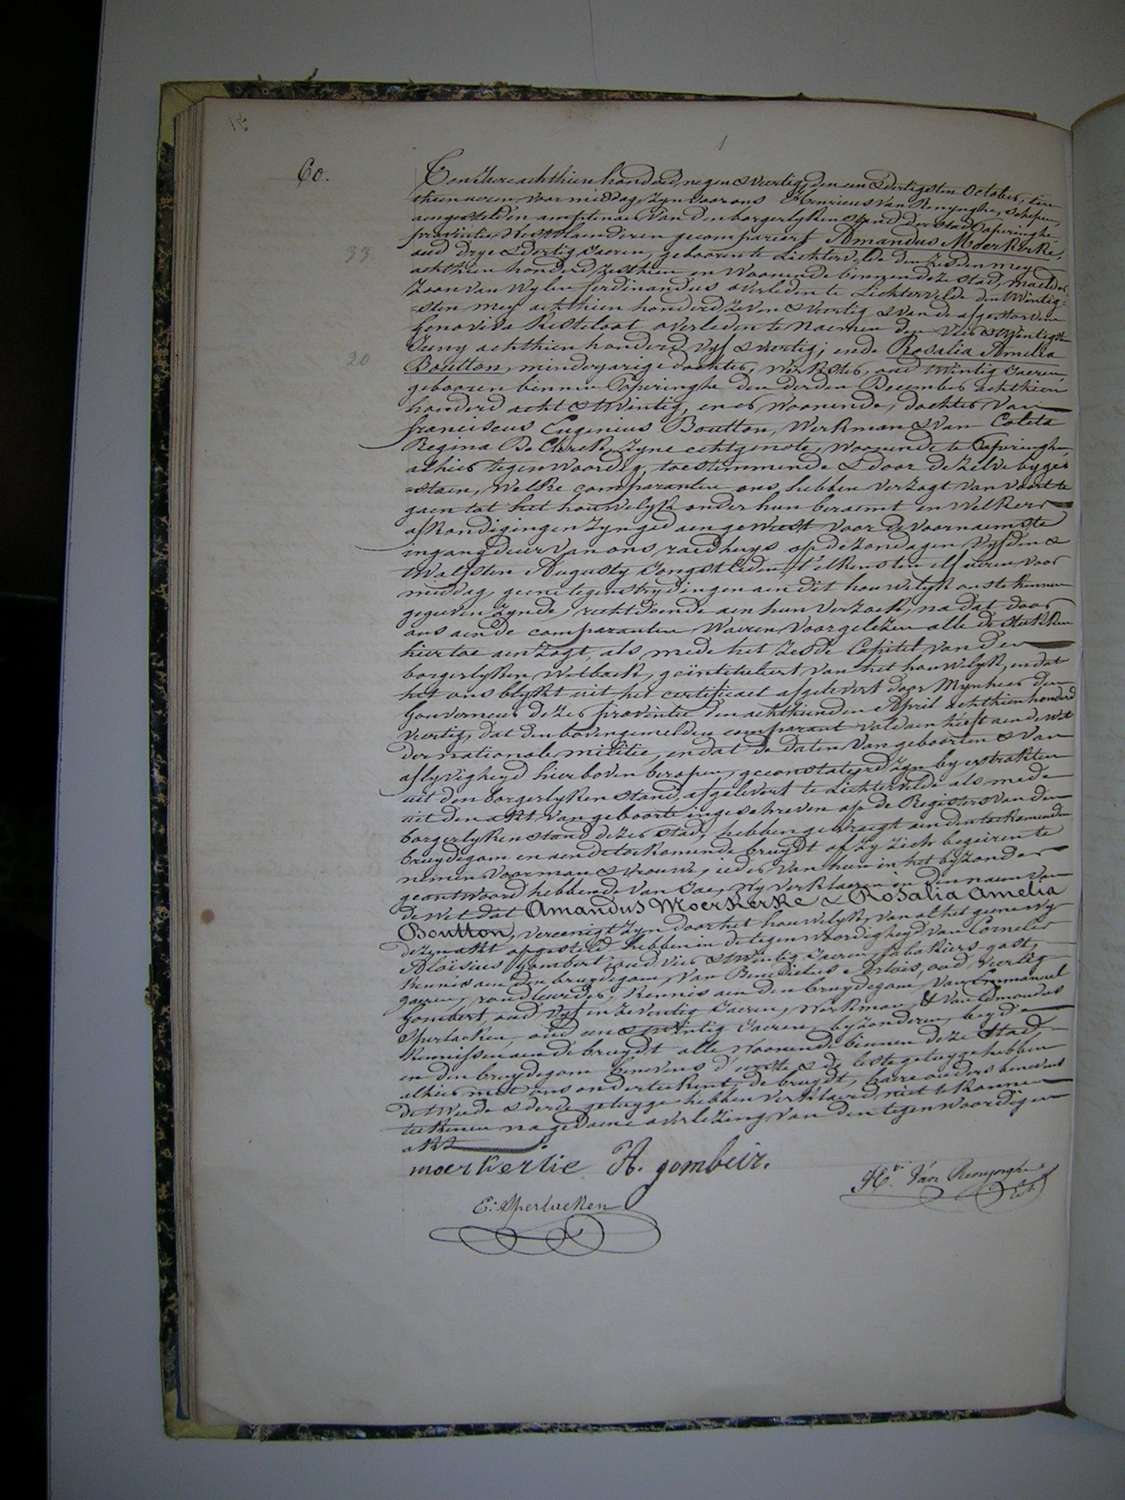 60.
Ten Jare achthien honderd negen & veertig, den een & dertigsten October, ten
thien uren voormiddag, zyn voor ons Henricus Van Renynghe, schepen,
aengesteld in amptenaer van den borgerlyken stand der Stad Poperinghe
provintie Westvlaenderen gecompareert Amandus Moerkerke,
33 oud drye & dertig Jaeren, gebooren te Lichtervelde den zesden mey
achthien honderd zesthien en Woonende binnen deze stad,
Zoon van Wylen ferdinandus overleden te Lichtervelde den twintig-
sten mey achthien honderd zeven & veertig & van de afgestorvene
Genoveva Kesteloot overleden te Naemen den vier & twintigsten
Juny achthien honderd vyf & veertig; ende Rosalia Amelia
20 Boutton, minderjarige dochter, Werkster, oud twintig Jaeren,
gebooren binnen Poperinghe den derden December achthien
honderd acht & twintig, en er Woonende, dochter Van
franciscus Eugenius Boutton, Werkman & Van Coleta
Regina De Clerck, zyne echtgenote, Woonende te Poperinghe,
alhier tegenwoordig, toestemmende & door dezelve byge-
staen, Welke comparanten ons hebben verzogt van voort te
gaen tot het houwelyk onder hun beraemt en Welkers
afkondigingen zyn gedaen geweest voor de voornaemste
ingangdeur van ons raedhuys op de zondagen vyfden &
twalfsten Augusty Jongstleden, t'elkenstén elf uren voor
middag, geene tegenstrydingen aen dit houwelyk ons te kennen
gegeven zynde, rechtdoende aen hun verzoek, na dat door
ons aen de comparanten Waeren voorgelezen alle de stukken
hier toe aenzogt, als mede het zesde Capitel van den
borgerlyken Wetboek, geïntituleert van het houwelyk, en dat
het ons blykt uit het certificaet afgelevert door Mynheer den
Gouverneur dezer provintie den achthienden April achthien honderd
veertig, dat den bovengemelden comparant voldaen heeft aen de Wet
der nationale militie, en dat de daten van geboorten & van
aflyvigheyd hierboven beroepen, geconstateerd zyn by extrakten
uit den borgerlyken stand, afgelevert te Lichtervelde als mede
uit den akt van geboorte ingeschreven op de Registers van den
borgerlyken stand dezer stad, hebben gevraegt aen den toekomenden
bruydegom en aen de toekomende bruydt of zy zich begeiren te
nemen voor man & vrouw; ieder van hun in het byzonder
geantwoord hebbende van Jae, Wy verklaeren in den naem van
de Wet dat Amandus Moerkerke & Rosalia Amelia
Boutton, vereenigt zyn door het houwelyk, van al het gene wy
dezen akt opgesteld hebben in de tegenwoordigheyd van Cornelis
Aloïsius Gombert, oud vier & twintig Jaeren, tabakiers-gast,
kennis aen den bruydegom, van Benedictus Arlois, oud veertig
Jaeren, kennis aen den bruydegom, van Emmanuel
Gombert, oud vyf en zeventig Jaeren, Werkman, & van Edmondus
Sperlaeken, oud een & twintig Jaeren, byzonderen, beyde
kennissen aen de bruydt alle Woonende binnen deze Stad,
en den bruydegom benevens d'eerste & de leste getuyge hebben
alhier met ons onderteekent, de bruydt, haere ouders benevens
de tweede & derde getuyge hebben verklaerd niet te konnen
teekenen na gedaene overlezing van den tegenwoordigen
akt.
moerkerke A. gombeir.
H.ri Van Renynghe
E: Sperlaeken